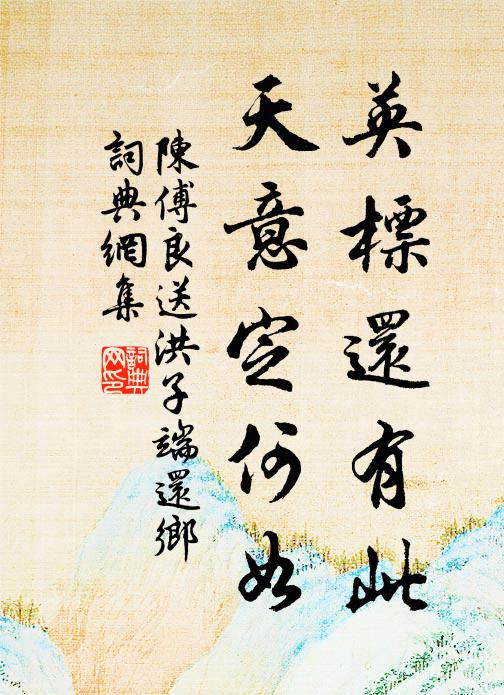 英標還有此
天意定何如
陳傅良送洪子端還鄉
詞典網集
詞典网印